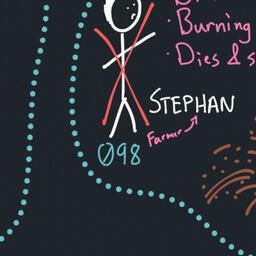 · Burning
· Dies & s
STEPHAN
Farmer
098